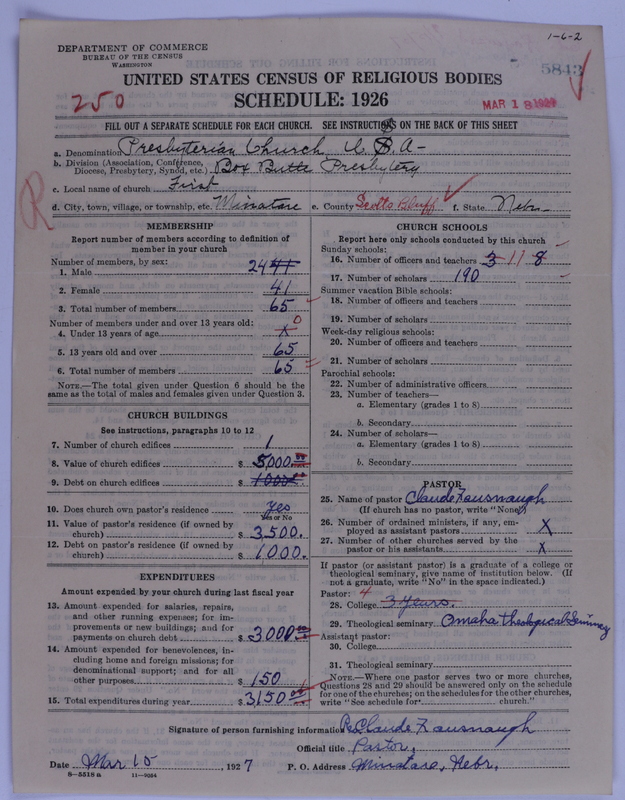 1-6-2
DEPARTMENT OF COMMERCE
BUREAU OF THE CENSUS
WASHINGTON
5843
UNITED STATES CENSUS OF RELIGIOUS BODIES
250
SCHEDULE: 1926
MAR 18 1927
FILL OUT A SEPARATE SCHEDULE FOR EACH CHURCH. SEE INSTRUCTIONS ON THE BACK OF THIS SHEET
a. Denomination Presbyterian Church U.S.A-
b. Division (Association, Conference, Diocese, Presbytery, Synod, etc.) Box Butte Presbytery
c. Local name of church First
R
d. City, town, village, or township, etc. Minatare e. County Scotts Bluff f. State Nebr.
MEMBERSHIP
Report number of members according to definition of
member in your church
Number of members, by sex:
1. Male 24 41
2. Female 41
3. Total number of members 65
Number of members under and over 13 years old:
4. Under 13 years of age x 0
5. 13 years old and over 65
6. Total number of members 65
NOTE.—The total given under Question 6 should be the
same as the total of males and females given under Question 3.
CHURCH BUILDINGS
See instructions, paragraphs 10 to 12
7. Number of church edifices 1
8. Value of church edifices $ 5000.00
9. Debt on church edifices $ 1000.00
10. Does church own pastor's residence Yes
Yes or No
11. Value of pastor's residence (if owned by
church) $ 3500.
12. Debt on pastor's residence (if owned by
church) $ 1000.
EXPENDITURES
Amount expended by your church during last fiscal year
13. Amount expended for salaries, repairs,
and other running expenses; for im-
provements or new buildings; and for
payments on church debt $ 3000.00
14. Amount expended for benevolences, in-
cluding home and foreign missions; for
denominational support; and for all
other purposes $ 150
15. Total expenditures during year $ 3150.00
CHURCH SCHOOLS
Report here only schools conducted by this church
Sunday schools:
16. Number of officers and teachers 3 11 8
17. Number of scholars 190
Summer vacation Bible schools:
18. Number of officers and teachers
19. Number of scholars
Week-day religious schools:
20. Number of officers and teachers
21. Number of scholars
Parochial schools:
22. Number of administrative officers
23. Number of teachers—
a. Elementary (grades 1 to 8)
b. Secondary
24. Number of scholars—
a. Elementary (grades 1 to 8)
b. Secondary
PASTOR
25. Name of pastor Claude Fausnaugh
(If church has no pastor, write "None")
26. Number of ordained ministers, if any, em-
ployed as assistant pastors X
27. Number of other churches served by the
pastor or his assistants X
If pastor (or assistant pastor) is a graduate of a college or
theological seminary, give name of institution below. (If
not a graduate, write "No" in the space indicated.)
Pastor: 4
28. College 3 years.
29. Theological seminary Omaha Theological Seminary
Assistant pastor:
30. College
31. Theological seminary
NOTE.—Where one pastor serves two or more churches,
Questions 28 and 29 should be answered only on the schedule
for one of the churches; on the schedules for the other churches,
write "See schedule for church."
Signature of person furnishing information Rev. Claude Fausnaugh
Official title Pastor,
Date Mar 15, 1927 P. O. Address Minatare, Nebr.
8-5518 a 11-9264